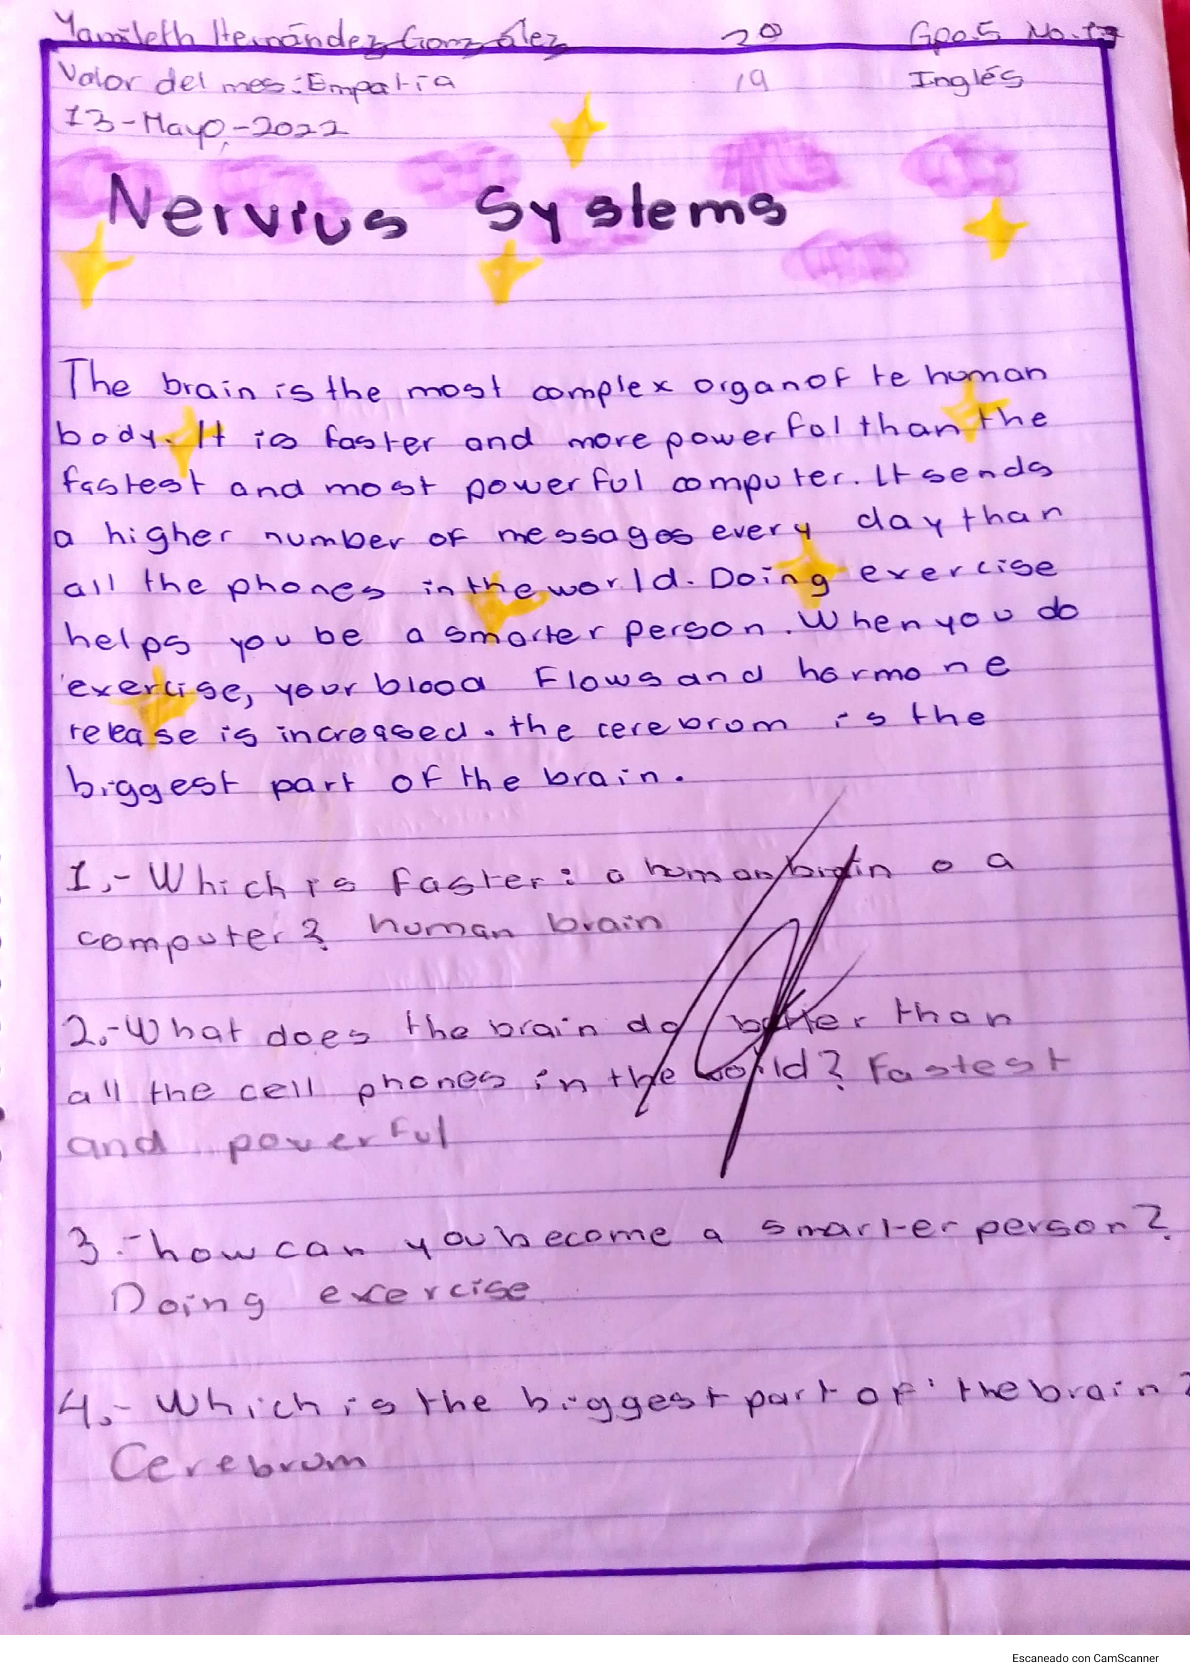 Yamileth Hernández González 20 Gpo.5 No.17
Valor del mes: Empatía 19 Inglés
13-Mayo,-2022
Nervius Systems
The brain is the most complex organ of te human
body. It is faster and more powerful than the
fastest and most powerful computer. It sends
a higher number of messages every day than
all the phones in the world. Doing exercise
helps you be a smarter person. When you do
exercise, your blood flows and hormone
release is increased. the cerebrum is the
biggest part of the brain.
1.- Which is faster: a human brain o a
computer? human brain
2.- What does the brain do better than
all the cell phones in the world? Fastest
and powerful
3.- how can you become a smarter person?
Doing exercise
4.- Which is the biggest part of the brain?
Cerebrum
Escaneado con CamScanner